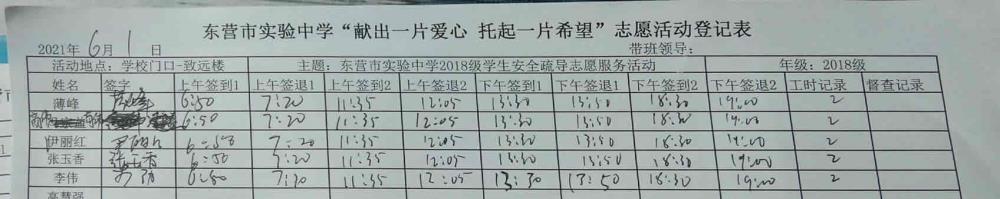 东营市实验中学“献出一片爱心 托起一片希望”志愿活动登记表
2021年6月1日 带班领导:
活动地点: 学校门口-致远楼 主题: 东营市实验中学2018级学生安全疏导志愿服务活动 年级: 2018级
姓名 签字 上午签到1 上午签退1 上午签到2 上午签退2 下午签到1 下午签退1 下午签到2 下午签退2 工时记录 督查记录
薄峰 薄峰 6:50 7:20 11:35 12:05 13:30 13:50 18:30 19:00 2
6:50 7:20 11:35 12:05 13:30 13:50 18:30 19:00 2
伊丽红 6:50 7:20 11:35 12:05 13:30 13:50 18:30 19:00 2
张玉香 张玉香 6:50 7:20 11:35 12:05 13:30 13:50 18:30 19:00 2
李伟 6:50 7:20 11:35 12:05 13:30 13:50 18:30 19:00 2
高慧强